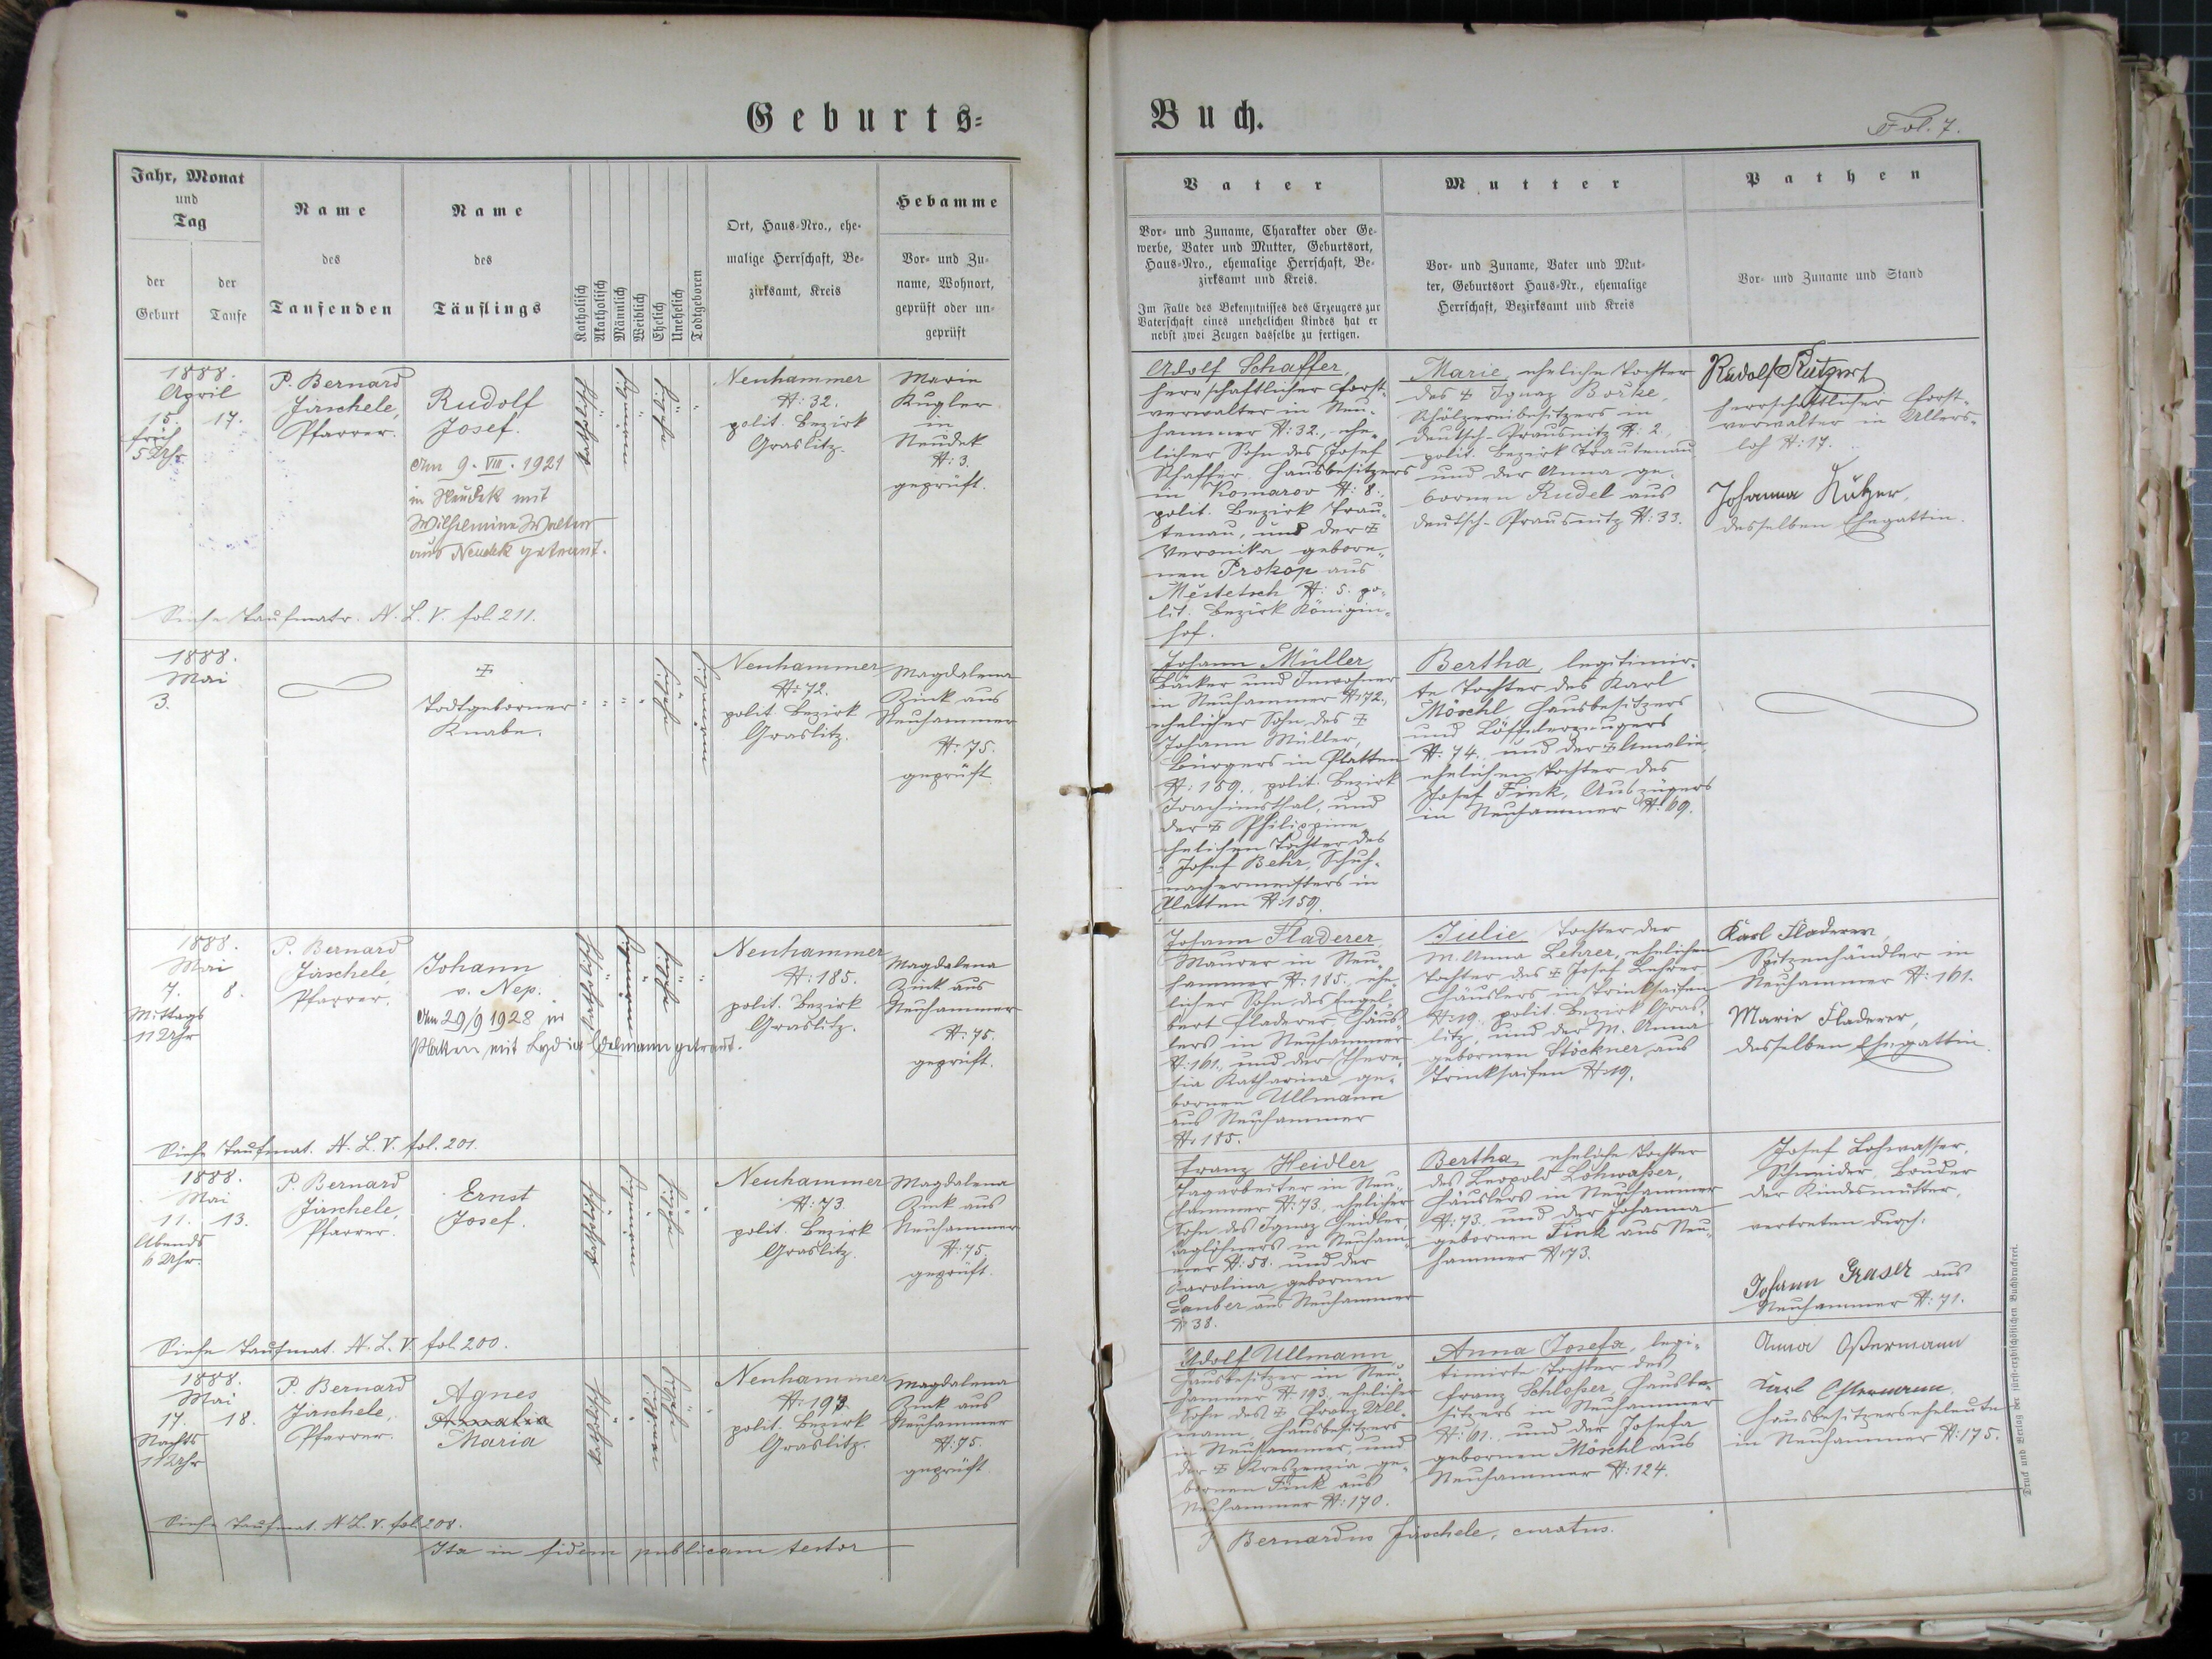 Geburts=
Buch.
Fol. 7.
Jahr, Monat
und
Tag
der
Geburt
der
Taufe
Name
des
Taufenden
Name
des
Täuflings
Katholisch
Akatholisch
Männlich
Weiblich
Ehelich
Unehelich
Todtgeboren
Ort, Haus-Nro., ehe-
malige Herrschaft, Be-
zirksamt, Kreis
Hebamme
Vor- und Zu-
name, Wohnort,
geprüft oder un-
geprüft
Vater
Vor- und Zuname, Charakter oder Ge-
werbe, Vater und Mutter, Geburtsort,
Haus-Nro., ehemalige Herrschaft, Be-
zirksamt und Kreis.
Im Falle des Bekenntnisses des Erzeugers zur
Vaterschaft eines unehelichen Kindes hat er
nebst zwei Zeugen dasselbe zu fertigen.
Mutter
Vor- und Zuname, Vater und Mut-
ter, Geburtsort Haus-Nr., ehemalige
Herrschaft, Bezirksamt und Kreis
Pathen
Vor- und Zuname und Stand
1888.
April
15. 17.
früh
5 Uhr.
P. Bernard
Jirschele,
Pfarrer.
Rudolf
Josef.
Am 9. VIII. 1921
in Neudek mit
Wilhelmine Walter
aus Neudek getraut.
Siehe Taufmatr. N. L. V. fol. 211.
katholisch
männlich
ehelich
Neuhammer
N: 32.
polit. Bezirk
Graslitz.
Marie
Kugler
in
Neudek
N: 3.
geprüft.
Adolf Schaffer,
herrschaftlicher Forst-
verwalter in Neu-
hammer N: 32., ehe-
licher Sohn des Josef
Schaffer, Hausbesitzers
in Komarov N: 8.
polit. Bezirk Trau-
tenau, und der ‡
Veronika gebore-
nen Prokop aus
Mestetsch N: 5. po-
lit. Bezirk Königin-
hof.
Marie, eheliche Tochter
des ‡ Ignaz Borke,
Schölzereibesitzers in
Deutsch-Prausnitz N: 2.,
polit. Bezirk Trautenau
und der Anna ge-
bornen Rudel aus
Deutsch-Prausnitz N: 33.
Rudolf
herrschaftlicher Forst-
verwalter in Ullers-
loh N: 17.
Johanna
desselben Ehegattin.
1888.
Mai
3.
‡
Todtgeborner
Knabe.
ehelich
Neuhammer
N: 72.
polit. Bezirk
Graslitz.
Magdalena
Zink aus
Neuhammer
N: 75.
geprüft.
Johann Müller,
Bäcker und Inwohner
in Neuhammer N: 72.,
ehelicher Sohn des ‡
Johann Müller,
Bürgers in Platten
N: 189., polit. Bezirk
Joachimsthal, und
der ‡ Philippine,
ehelichen Tochter des
Josef Behr, Schuh-
machermeisters in
Platten N: 159.
Bertha, legitimir-
te Tochter des Karl
Möschl, Hausbesitzers
und Löffelerzeugers
N: 74. und der ‡ Amalie,
ehelichen Tochter des
Josef Fink, Auszüglers
in Neuhammer N: 69.
1888.
Mai
7. 8.
Mittags
11 Uhr
P. Bernard
Jirschele,
Pfarrer.
Johann
v. Nep.
Am 29/9 1928 in
Platten mit Lydia Edelmann getraut.
Siehe Taufmat. N. L. V. fol. 201.
katholisch
männlich
ehelich
Neuhammer
N: 185.
polit. Bezirk
Graslitz.
Magdalena
Zink aus
Neuhammer
N: 75.
geprüft.
Johann Fladerer,
Maurer in Neu-
hammer N: 185., ehe-
licher Sohn des Engel-
bert Fladerer, Häus-
lers in Neuhammer
N: 161., und der There-
sia Katharina ge-
bornen Ullmann
aus Neuhammer
N: 185.
Julie, Tochter der
M. Anna Lehrer, ehelichen
Tochter des ‡ Josef Lehrer,
Häuslers in Trinksaifen
N: 19. polit. Bezirk Gras-
litz, und der M. Anna
gebornen Stöckner aus
Trinksaifen N: 19.
Karl Fladerer,
Spitzenhändler in
Neuhammer N: 161.
Marie Fladerer,
desselben Ehegattin.
1888.
Mai
11. 13.
Abends
6 Uhr.
P. Bernard
Jirschele,
Pfarrer.
Ernst
Josef.
Siehe Taufmat. N. L. V. fol. 200.
katholisch
männlich
ehelich
Neuhammer
N: 73.
polit. Bezirk
Graslitz.
Magdalena
Zink aus
Neuhammer
N: 75.
geprüft.
Franz Heidler,
Tagarbeiter in Neu-
hammer N: 73., ehelicher
Sohn des Ignaz Heidler,
Taglöhners in Neuham-
mer N: 58. und der
Karolina gebornen
Gauber aus Neuhammer
N: 38.
Bertha, eheliche Tochter
des Leopold Lohwaßer,
Häuslers in Neuhammer
N: 73. und der Johanna
gebornen Fink aus Neu-
hammer N: 73.
Josef Lohwasser,
Schneider, Bruder
der Kindesmutter,
vertreten durch:
Johann Graser aus
Neuhammer N: 71.
1888.
Mai
17. 18.
Nachts
11 Uhr
P. Bernard
Jirschele,
Pfarrer.
Agnes
Amalia
Maria
Siehe Taufmat. N. L. V. fol. 208.
katholisch
ehelich
Neuhammer
N: 193.
polit. Bezirk
Graslitz.
Magdalena
Zink aus
Neuhammer
N: 75.
geprüft
Adolf Ullmann,
Hausbesitzer in Neu-
hammer N: 193., ehelicher
Sohn des ‡ Franz Ull-
mann, Hausbesitzers
in Neuhammer, und
der ‡ Kreszenzia ge-
bornen Fink aus
Neuhammer N: 170.
Anna Josefa, legi-
timirte Tochter des
Franz Schloßer, Hausbe-
sitzers in Neuhammer
N: 61. und der Josefa
gebornen Möschl aus
Neuhammer N: 124.
Anna Oßermann
Karl
Hausbesitzerseheleute
in Neuhammer N: 175.
Ita in fidem publicam testor
P. Bernardus Jirschele, curatus.
Druck und Verlag der fürst-erzbischöflichen Buchdruckerei.
12
31